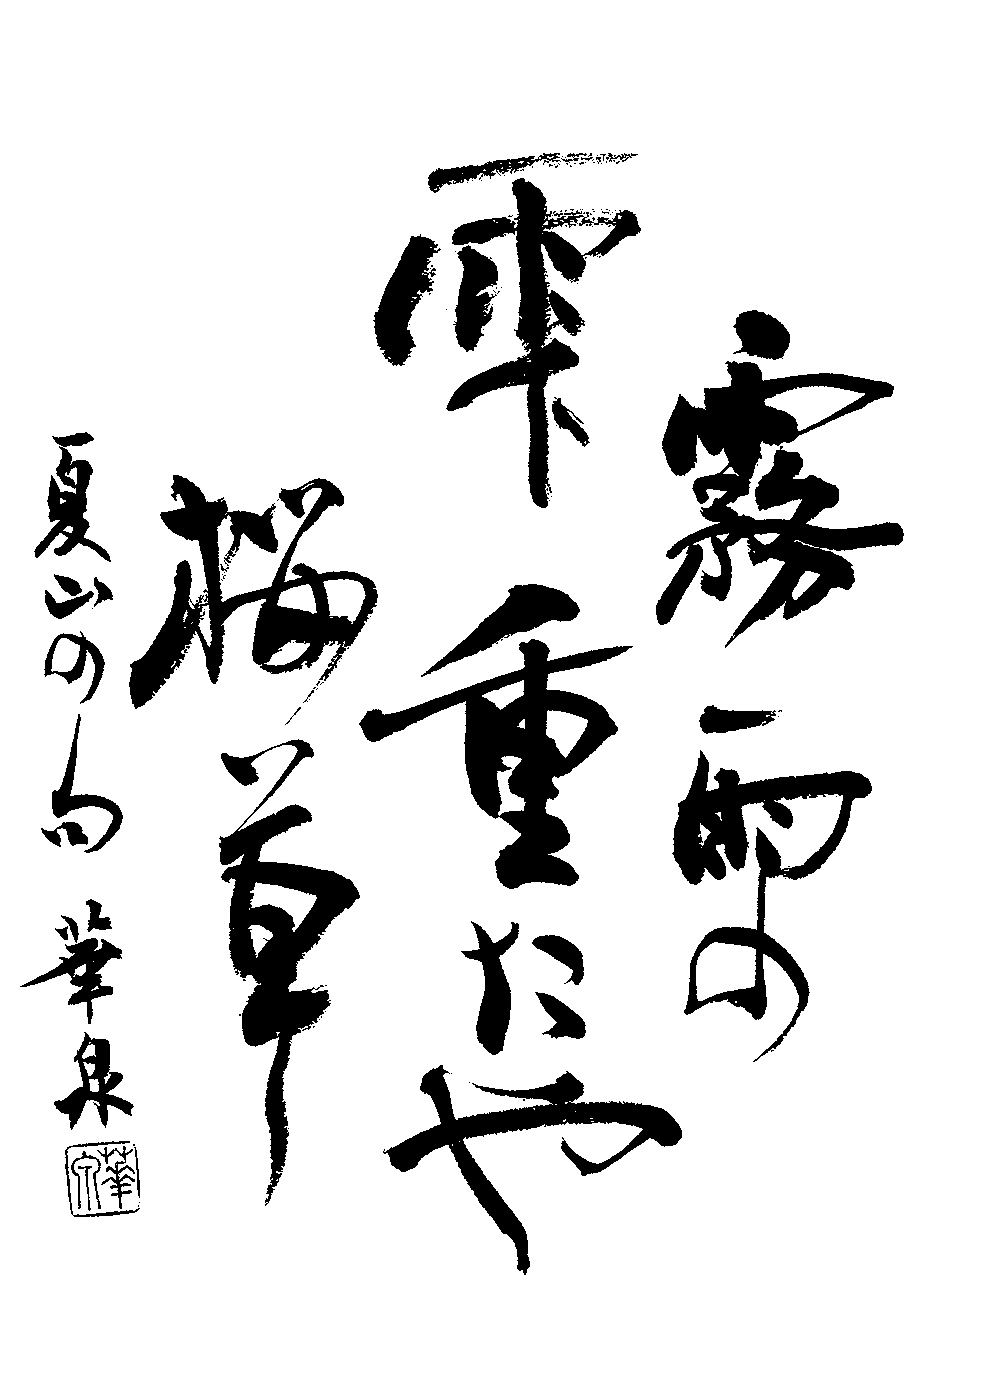 霧雨の
雫重たや
桜草
夏山の句 華泉
華泉